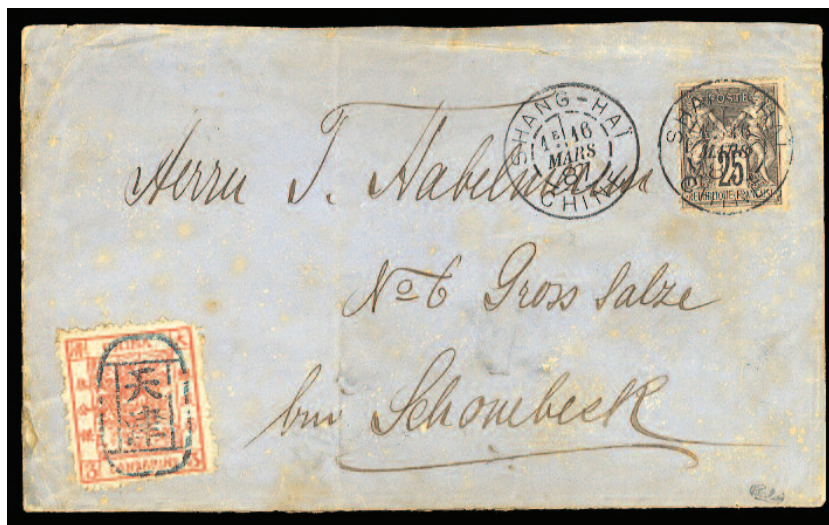 SHANG-HAÏ
1E 16
MARS
81
CHINE
POSTE
25
REPUBLIQUE FRANÇAISE
Herrn J. Habelmann
No 6 Gross Salze
bei Schonebeck
CHINA
大
清
天津
3
CANDARINS
3